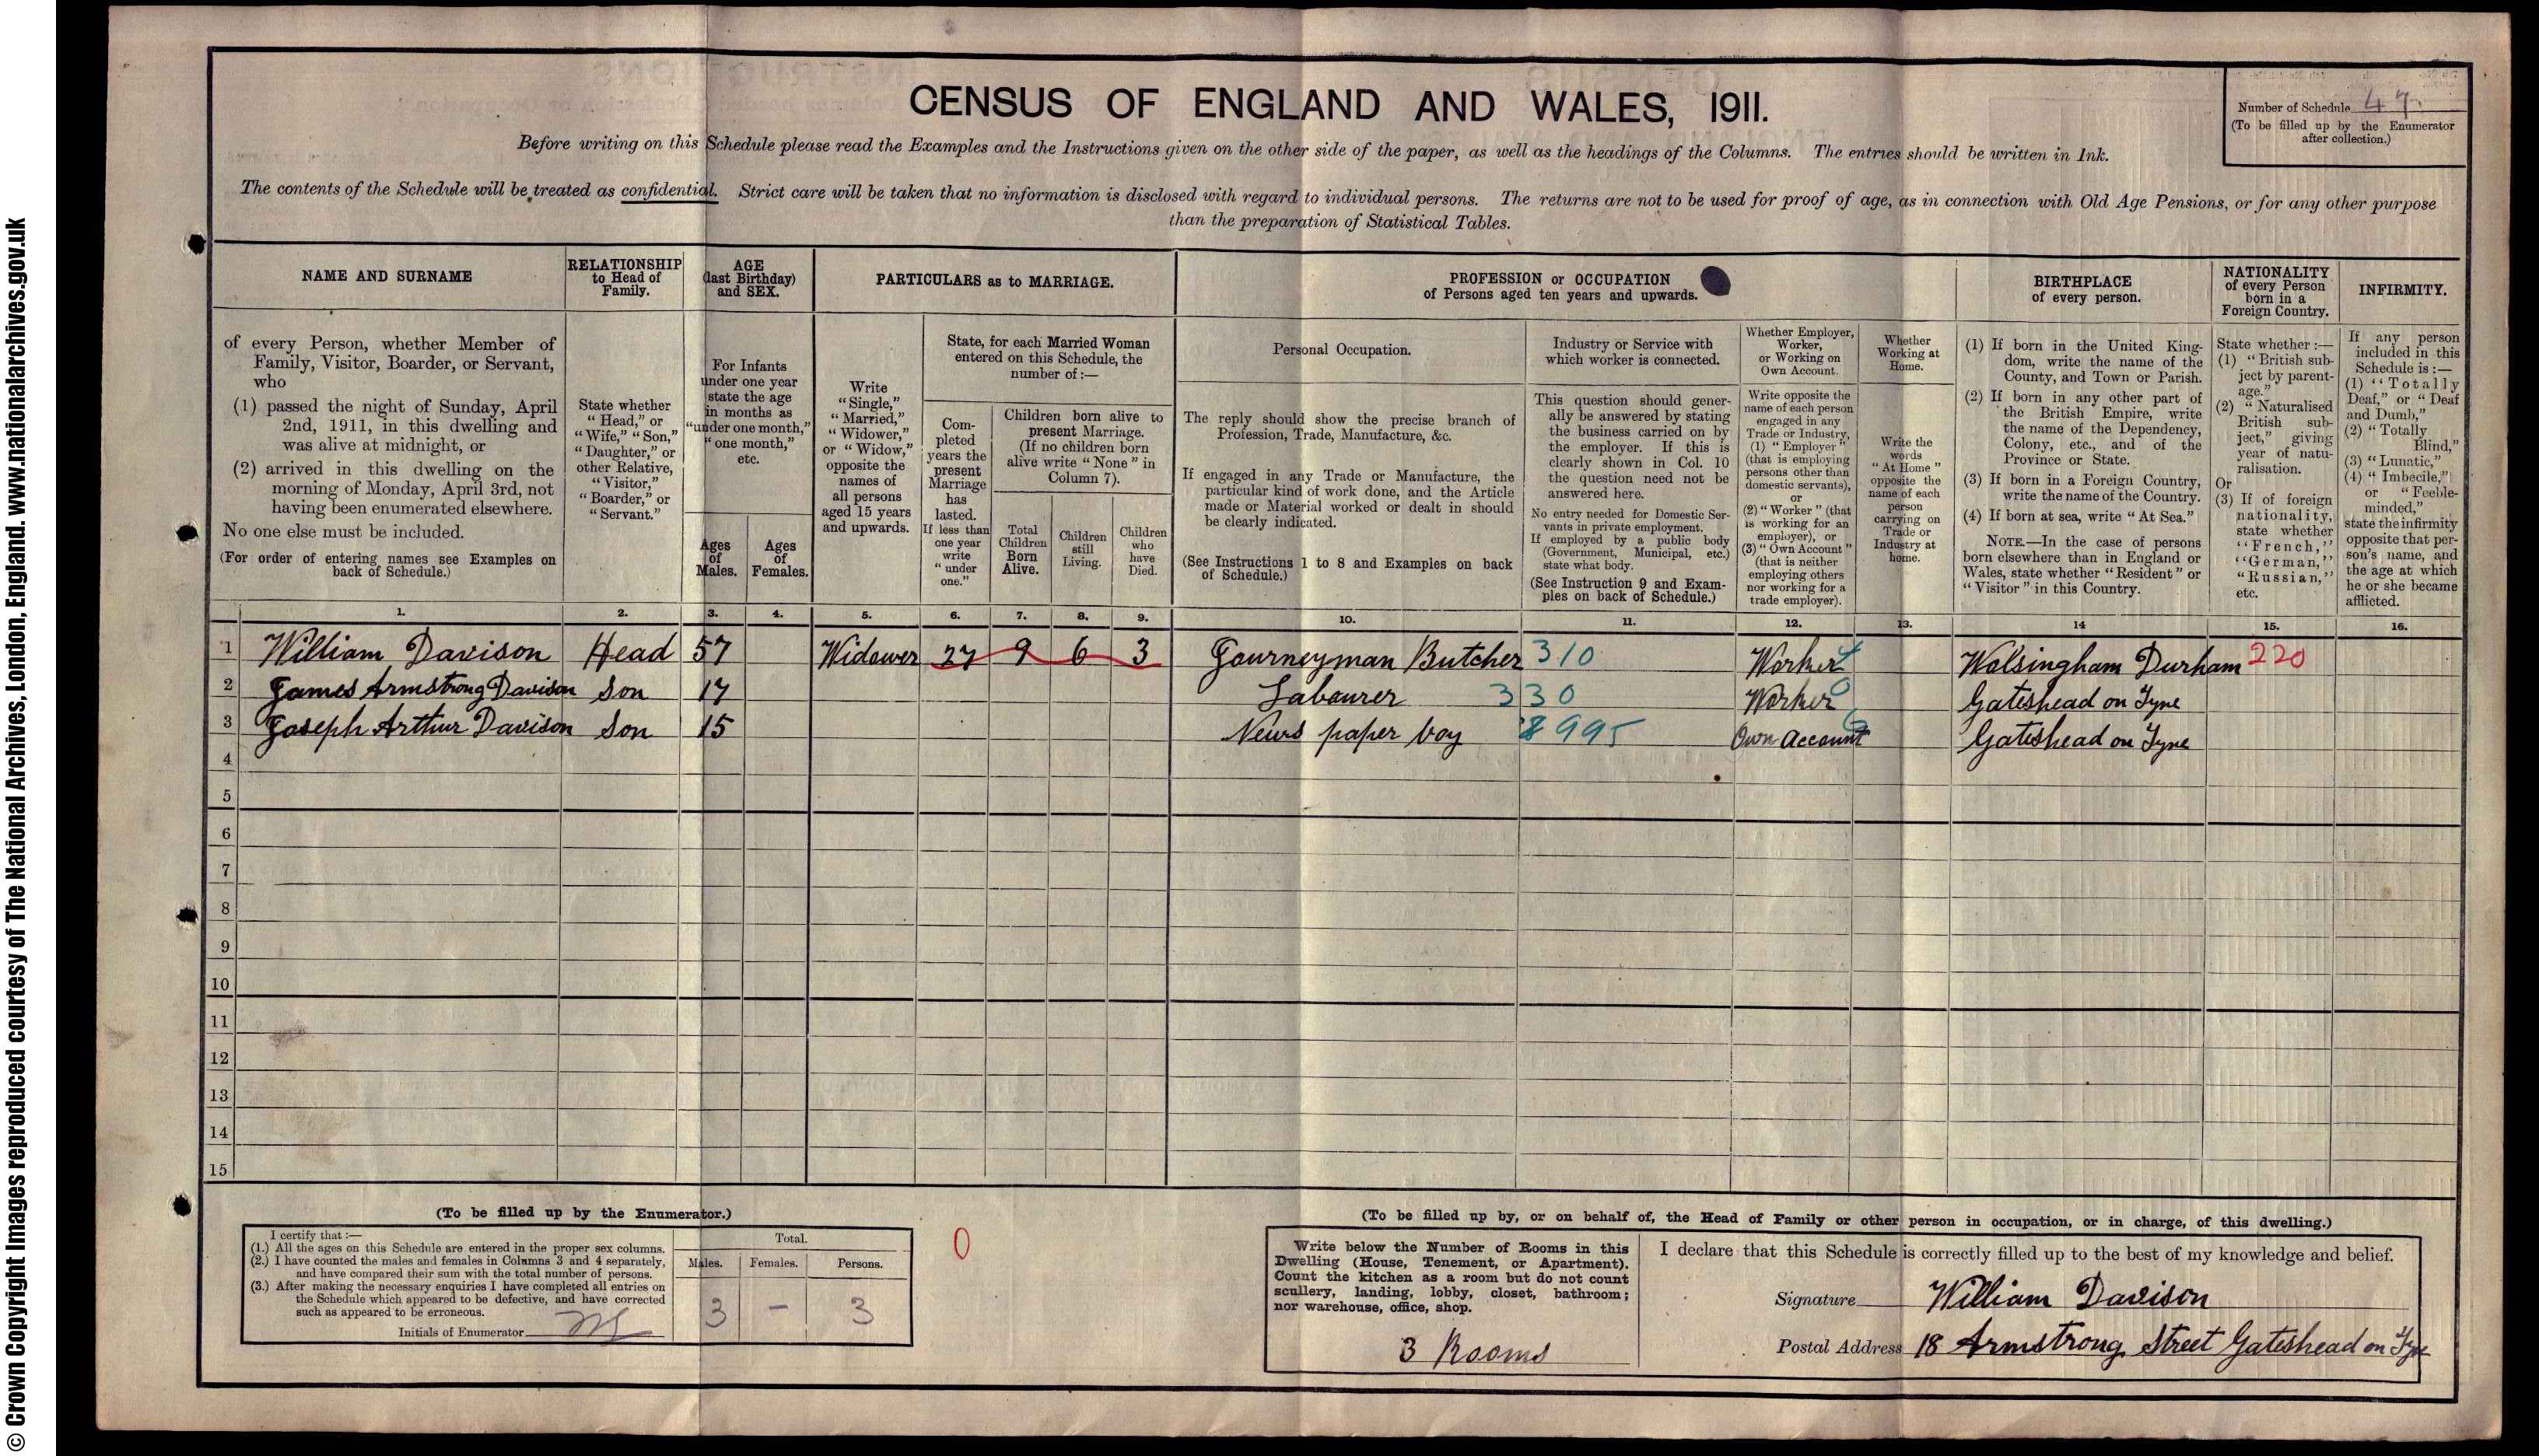 © Crown Copyright Images reproduced courtesy of The National Archives, London, England. www.nationalarchives.gov.uk
CENSUS OF ENGLAND AND WALES, 1911.
Number of Schedule 47.
(To be filled up by the Enumerator
after collection.)
Before writing on this Schedule please read the Examples and the Instructions given on the other side of the paper, as well as the headings of the Columns. The entries should be written in Ink.
The contents of the Schedule will be treated as confidential. Strict care will be taken that no information is disclosed with regard to individual persons. The returns are not to be used for proof of age, as in connection with Old Age Pensions, or for any other purpose
than the preparation of Statistical Tables.
NAME AND SURNAME
of every Person, whether Member of
Family, Visitor, Boarder, or Servant,
who
(1) passed the night of Sunday, April
2nd, 1911, in this dwelling and
was alive at midnight, or
(2) arrived in this dwelling on the
morning of Monday, April 3rd, not
having been enumerated elsewhere.
No one else must be included.
(For order of entering names see Examples on
back of Schedule.)
RELATIONSHIP
to Head of
Family.
State whether
"Head," or
"Wife," "Son,"
"Daughter," or
other Relative,
"Visitor,"
"Boarder," or
"Servant."
AGE
(last Birthday)
and SEX.
For Infants
under one year
state the age
in months as
"under one month,"
"one month,"
etc.
Ages
of
Males.
Ages
of
Females.
PARTICULARS as to MARRIAGE.
Write
"Single,"
"Married,"
"Widower,"
or "Widow,"
opposite the
names of
all persons
aged 15 years
and upwards.
State, for each Married Woman
entered on this Schedule, the
number of:—
Com-
pleted
years the
present
Marriage
has
lasted.
If less than
one year
write
"under
one."
Children born alive to
present Marriage.
(If no children born
alive write "None" in
Column 7).
Total
Children
Born
Alive.
Children
still
Living.
Children
who
have
Died.
PROFESSION or OCCUPATION
of Persons aged ten years and upwards.
Personal Occupation.
The reply should show the precise branch of
Profession, Trade, Manufacture, &c.
If engaged in any Trade or Manufacture, the
particular kind of work done, and the Article
made or Material worked or dealt in should
be clearly indicated.
(See Instructions 1 to 8 and Examples on back
of Schedule.)
Industry or Service with
which worker is connected.
This question should gener-
ally be answered by stating
the business carried on by
the employer. If this is
clearly shown in Col. 10
the question need not be
answered here.
No entry needed for Domestic Ser-
vants in private employment.
If employed by a public body
(Government, Municipal, etc.)
state what body.
(See Instruction 9 and Exam-
ples on back of Schedule.)
Whether Employer,
Worker,
or Working on
Own Account.
Write opposite the
name of each person
engaged in any
Trade or Industry,
(1) "Employer"
(that is employing
persons other than
domestic servants),
or
(2) "Worker" (that
is working for an
employer), or
(3) "Own Account"
(that is neither
employing others
nor working for a
trade employer).
Whether
Working at
Home.
Write the
words
"At Home"
opposite the
name of each
person
carrying on
Trade or
Industry at
home.
BIRTHPLACE
of every person.
(1) If born in the United King-
dom, write the name of the
County, and Town or Parish.
(2) If born in any other part of
the British Empire, write
the name of the Dependency,
Colony, etc., and of the
Province or State.
(3) If born in a Foreign Country,
write the name of the Country.
(4) If born at sea, write "At Sea."
NOTE.—In the case of persons
born elsewhere than in England or
Wales, state whether "Resident" or
"Visitor" in this Country.
NATIONALITY
of every Person
born in a
Foreign Country.
State whether :—
(1) "British sub-
ject by parent-
age."
(2) "Naturalised
British sub-
ject," giving
year of natu-
ralisation.
Or
(3) If of foreign
nationality,
state whether
"French,"
"German,"
"Russian,"
etc.
INFIRMITY.
If any person
included in this
Schedule is :—
(1) "Totally
Deaf," or "Deaf
and Dumb,"
(2) "Totally
Blind,"
(3) "Lunatic,"
(4) "Imbecile,"
or "Feeble-
minded,"
state the infirmity
opposite that per-
son's name, and
the age at which
he or she became
afflicted.
1. 2. 3. 4. 5. 6. 7. 8. 9. 10. 11. 12. 13. 14 15. 16.
1 William Davison Head 57 Widower 27 9 6 3 Journeyman Butcher 310 Worker Wolsingham Durham 220
2 James Armstrong Davison Son 17 Labourer 330 Worker Gateshead on Tyne
3 Joseph Arthur Davison Son 15 News paper boy 8995 Own Account Gateshead on Tyne
4
5
6
7
8
9
10
11
12
13
14
15
(To be filled up by the Enumerator.)
I certify that :—
(1.) All the ages on this Schedule are entered in the proper sex columns.
(2.) I have counted the males and females in Columns 3 and 4 separately,
and have compared their sum with the total number of persons.
(3.) After making the necessary enquiries I have completed all entries on
the Schedule which appeared to be defective, and have corrected
such as appeared to be erroneous.
Initials of Enumerator
Total.
Males. Females. Persons.
3 – 3
0
(To be filled up by, or on behalf of, the Head of Family or other person in occupation, or in charge, of this dwelling.)
Write below the Number of Rooms in this
Dwelling (House, Tenement, or Apartment).
Count the kitchen as a room but do not count
scullery, landing, lobby, closet, bathroom;
nor warehouse, office, shop.
3 Rooms
I declare that this Schedule is correctly filled up to the best of my knowledge and belief.
Signature William Davison
Postal Address 18 Armstrong Street Gateshead on Tyne